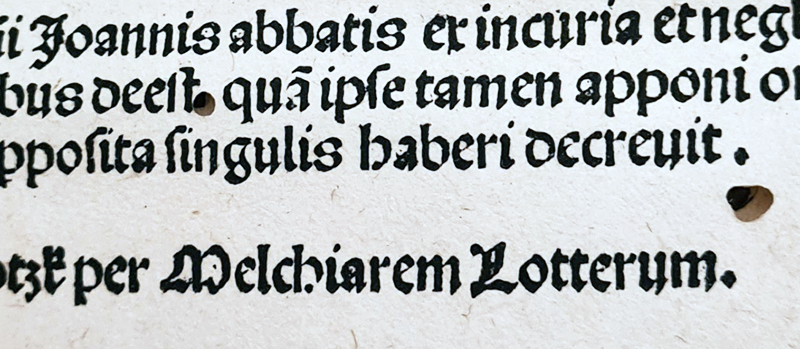 ii Joannis abbatis ex incuria et negl
bus deest. quā ipſe tamen apponi or
ppoſita ſingulis haberi decreuit.
otzk per Melchiarem Lotterum.